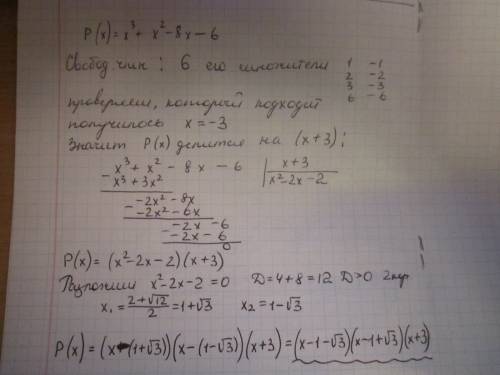 P(x) = x³ + x² - 8x - 6
Свобод. член : 6 его множители 1 -1
2 -2
3 -3
6 -6
проверяем, который подходит
получилось x = -3
Значит P(x) делится на (x+3) :
x³ + x² - 8x - 6 | x+3
- x³ + 3x² | x² - 2x - 2
-2x² - 8x
- -2x² - 6x
-2x - 6
- -2x - 6
0
P(x) = (x² - 2x - 2)(x+3)
x² - 2x - 2 = 0 D = 4 + 8 = 12 D > 0
x₁ = (2+√12)/2 = 1+√3 x₂ = 1-√3
P(x) = (x - (1+√3))(x - (1-√3))(x+3) = (x-1-√3)(x-1+√3)(x+3)